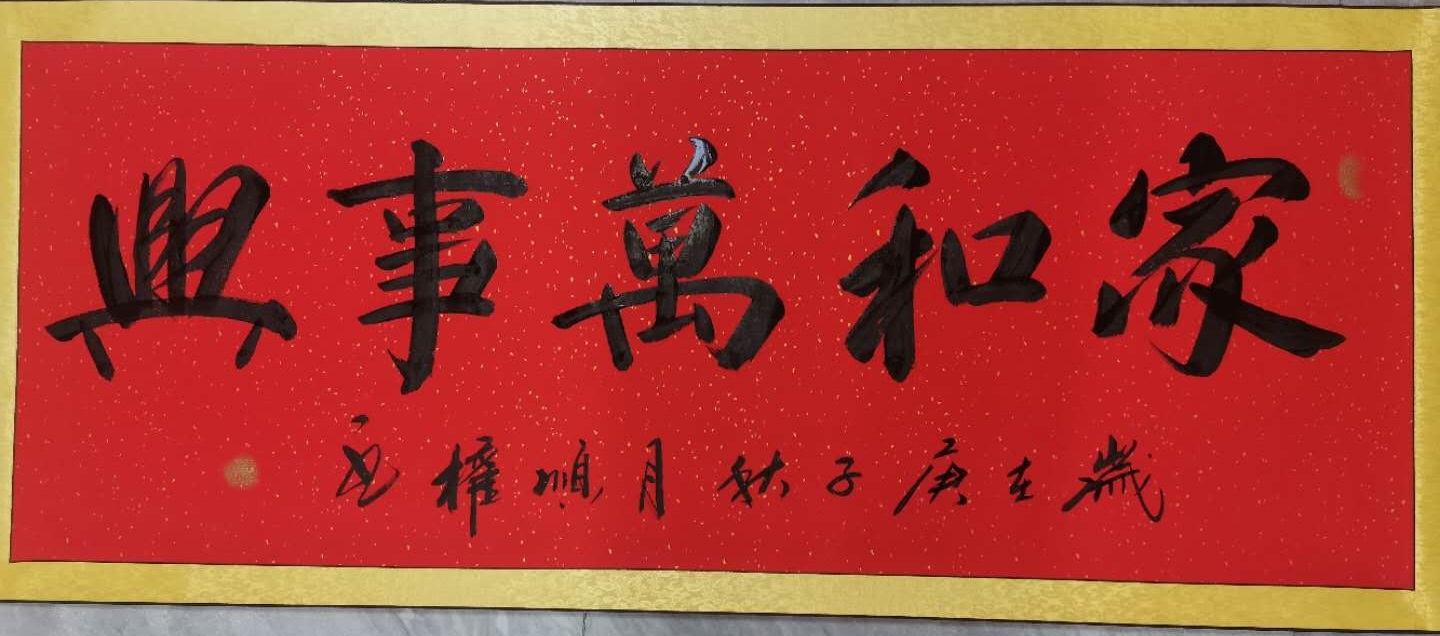 家和萬事興
歲在庚子秋月順權書